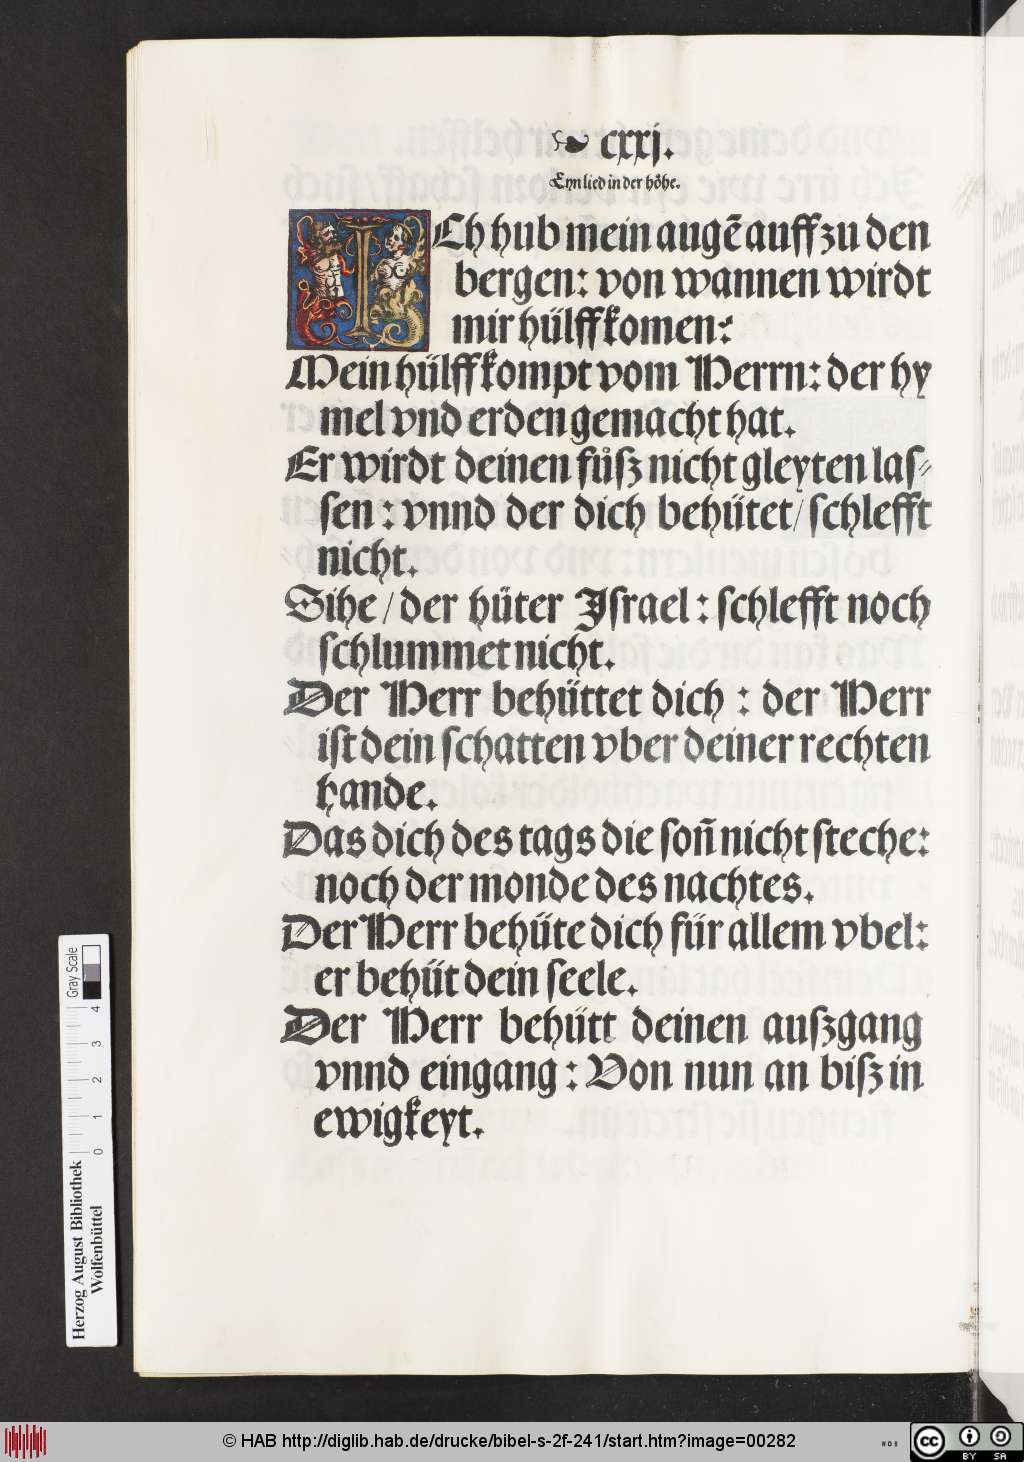 ❧ cxxj.
Eyn lied in der höhe.
ICh hub mein augē auff zu den
bergen: von wannen wirdt
mir hülff komen:
Mein hülff kompt vom Herrn: der hy
mel vnd erden gemacht hat.
Er wirdt deinen fůſz nicht gleyten laſ⸗
ſen: vnnd der dich behütet/ ſchlefft
nicht.
Sihe/ der hüter Iſrael: ſchlefft noch
ſchlummet nicht.
Der Herr behüttet dich: der Herr
iſt dein ſchatten vber deiner rechten
hande.
Das dich des tags die ſoñ nicht ſteche:
noch der monde des nachtes.
Der Herr behüte dich für allem vbel:
er behüt dein ſeele.
Der Herr behütt deinen auſzgang
vnnd eingang: Von nun an biſz in
ewigkeyt.
Herzog August Bibliothek
Wolfenbüttel
0 1 2 3 4
Gray Scale
© HAB http://diglib.hab.de/drucke/bibel-s-2f-241/start.htm?image=00282
WDB
cc BY SA